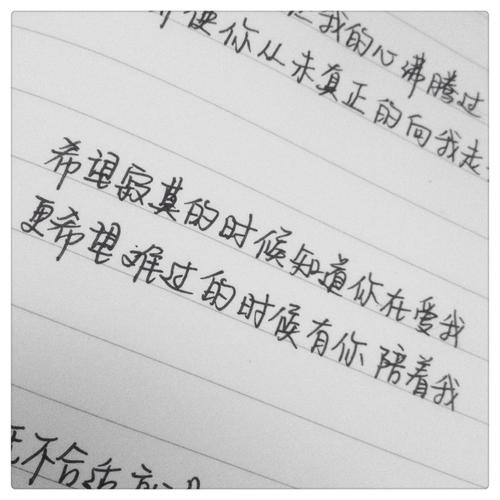 我的心沸腾过
你从未真正的向我走
希望寂寞的时候知道你在爱我
更希望难过的时候有你陪着我
不合适